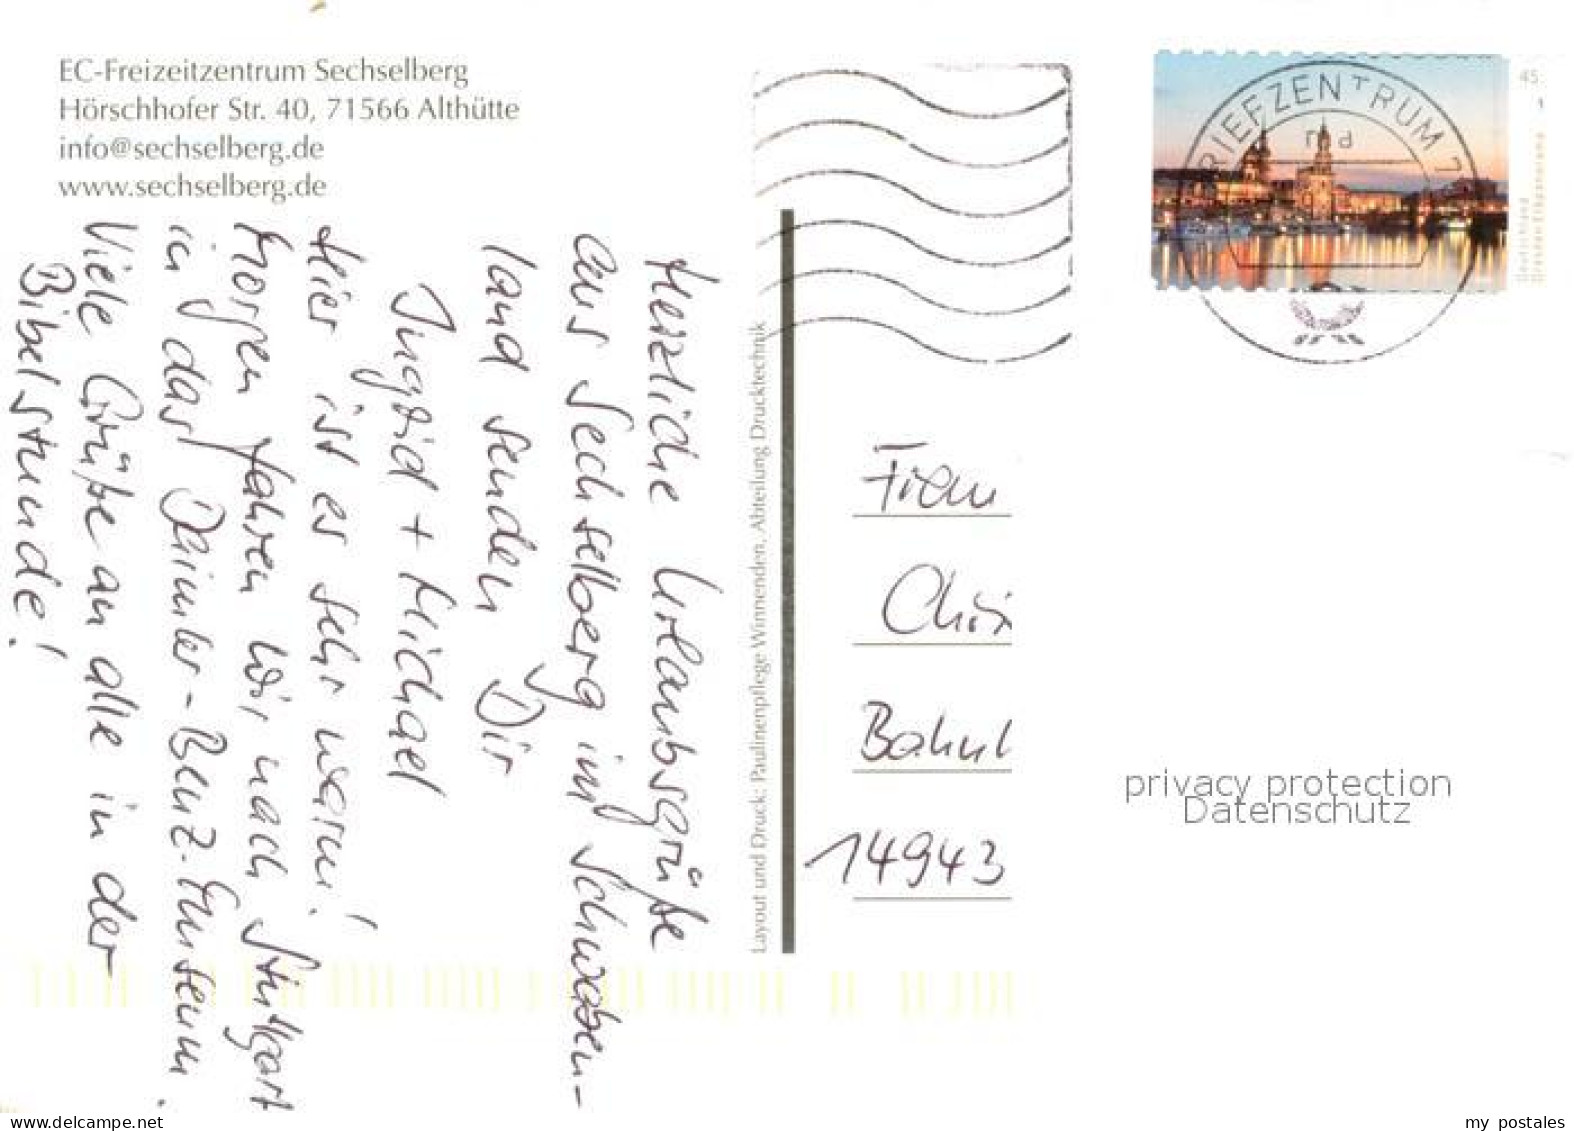 EC-Freizeitzentrum Sechselberg
Hörschhofer Str. 40, 71566 Althütte
info@sechselberg.de
www.sechselberg.de
Herzliche Urlaubsgrüße
aus Sechselberg im Schwaben-
land senden Dir
Ingrid + Michael
Hier ist es sehr warm!
Morgen fahren wir nach Stuttgart
in das Daimler-Benz-Museum.
Viele Grüße an alle in der
Bibelstunde!
Layout und Druck: Paulinenpflege Winnenden, Abteilung Drucktechnik
BRIEFZENTRUM 7
45
Deutschland
Frau
14943
privacy protection
Datenschutz
www.delcampe.net
my_postales